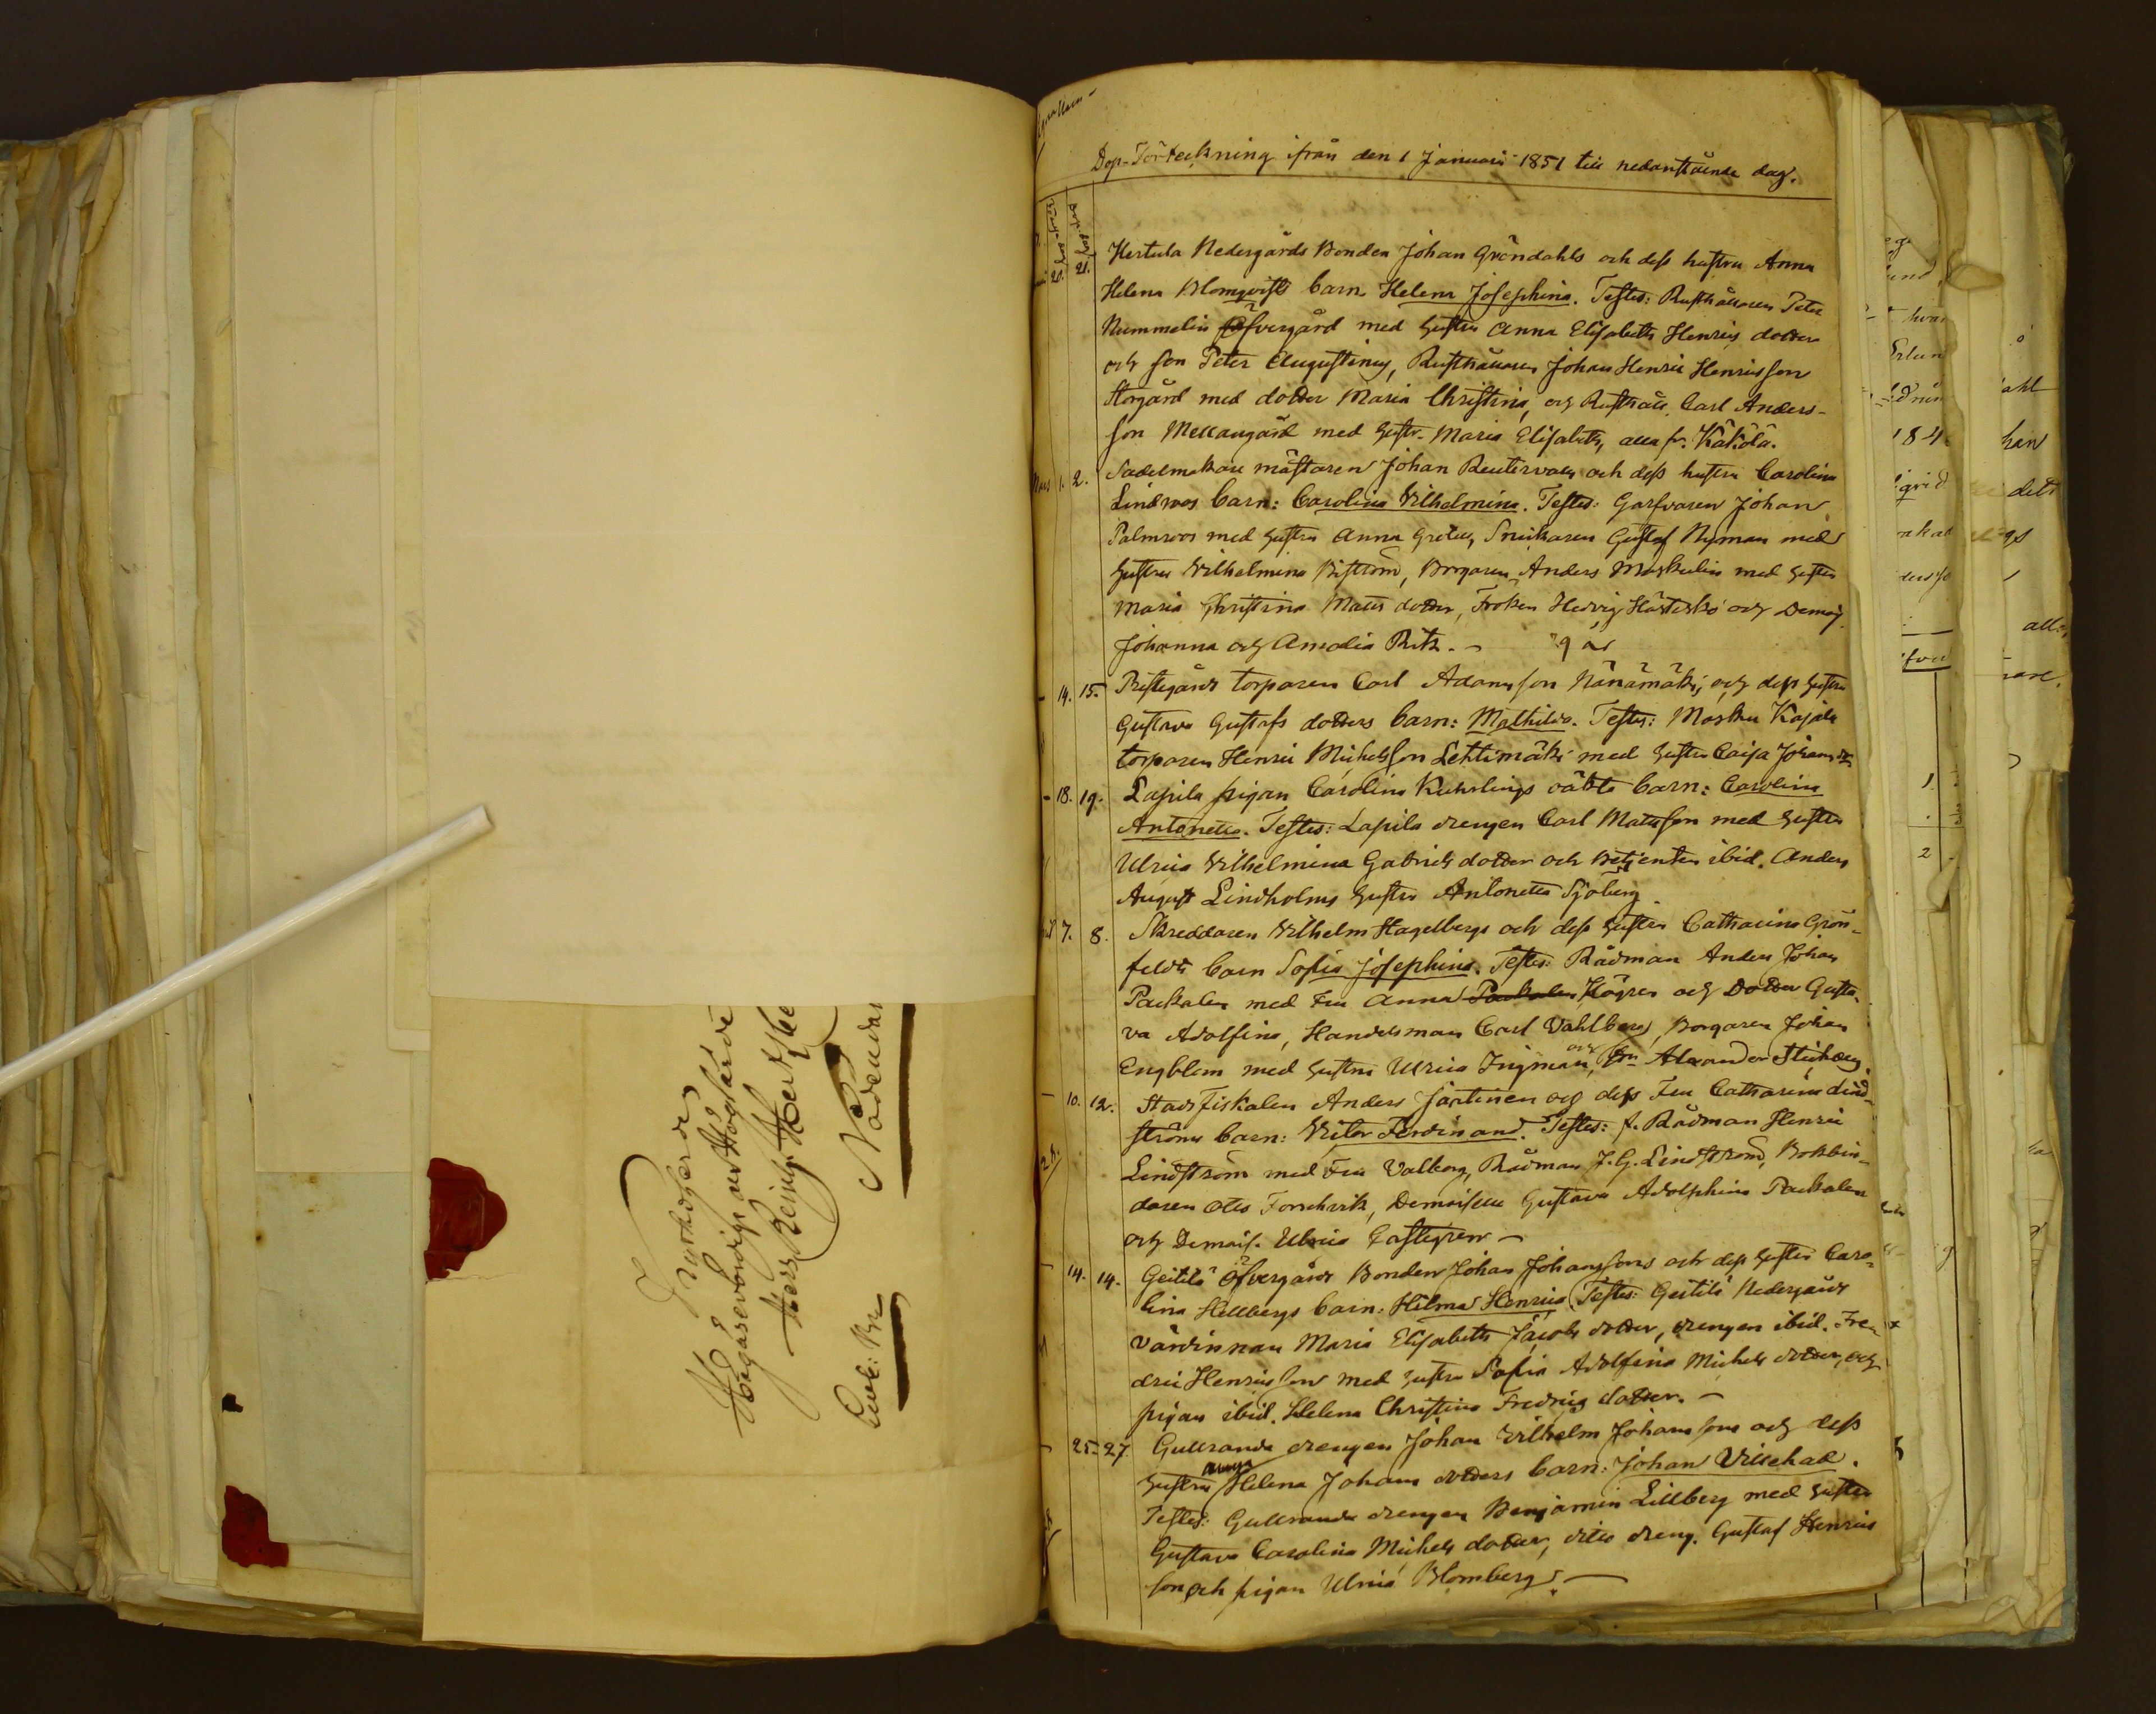 Dop-Förteckning ifrån den 1 Januarii 1851 till nedanstående dag.
20. 21. Hertula Nedergårds Bonden Johan Gröndahls och dess hustru Anna
Helena Blomqvists barn Helena Josephina. Testes: Rusthållaren Peter
Nummelin Öfvergård med hustru Anna Elisabeth Henrics dotter
och son Peter Augustinus, Rusthållaren Johan Henric Henricsson
Storgård med dotter Maria Christina, och Rusthåll. Carl Anders-
son Mellangård med hustr. Maria Elisabeth, alla fr. Käkölä.
Mars 1. 2. Sadelmakare mästaren Johan Reutervalls och dess hustru Carolina
Lindroos barn: Carolina Vilhelmina. Testes: Garfvaren Johan
Palmroos med hustru Anna Greta, Snickaren Gustaf Nyman med
hustru Vilhelmina Biström, Borgaren Anders Maskulin med hustru
Maria Christina Matts dotter, Fröken Hedvig Hästesko och Demois.
Johanna och Amalia Ritz. –
– 14. 15. Prestgårds torparen Carl Adamsson Nänämäki, och dess hustru
Gustava Gustafs dotters barn: Mathilda. Testes: Masku Kajala
torparen Henric Michelsson Lehtimäki med hustru Caisa Johans dr
– 18. 19. Lapila pigan Carolina Kuhrlings oäkta barn: Carolina
Antonetta. Testes: Lapila drengen Carl Matsson med hustru
Ulrica Vilhelmina Gabriels dotter och Betjenten ibid. Anders
August Lindholms hustru Antonetta Sjöberg.
7. 8. Skreddaren Vilhelm Hagelbergs och dess hustru Catharina Grön-
feldts barn Sofia Josephina. Testes: Rådman Anders Johan
Packalen med Fru Anna Packalen Högren och Dotter Gusta-
va Adolfina, Handelsman Carl Vahlberg, Borgaren Johan
Engblom med hustru Ulrica Ingman, och Alexander
– 10. 12. Stadsfiskalen Anders Järtinen och dess Fru Catharina Lind-
ströms barn: Victor Ferdinand. Testes: f. Rådman Henric
Lindström med Fru Valborg, Rådman J. G. Lindström, Bokbin-
daren Otto Forschvik, Demoiselle Gustava Adolphina Packalen
och Demois. Ulrica Castegren –
– 14. 14. Geitilä Öfvergårds Bonden Johan Johanssons och dess hustru Caro-
lina Hellbergs barn: Hilma Henrica. Testes: Geitilä Nedergårds
värdinnan Maria Elisabeth Jacobs dotter, drengen ibid. Fre-
dric Henricsson med hustru Sofia Adolfina Michels dotter, och
pigan ibid. Helena Christina Fredrics dotter. –
– 25. 27. Gullranda drengen Johan Vilhelm Johansson och dess
hustru Helena Johans dotters barn: Johan Villehad.
Testes: Gullranda drengen Benjamin Lillberg med hustru
Gustava Carolina Michels dotter, dito dreng. Gustaf Henrics
son och pigan Ulrica Blomberg. –
Högärevördige och Höglärde
Herr
Nådendal